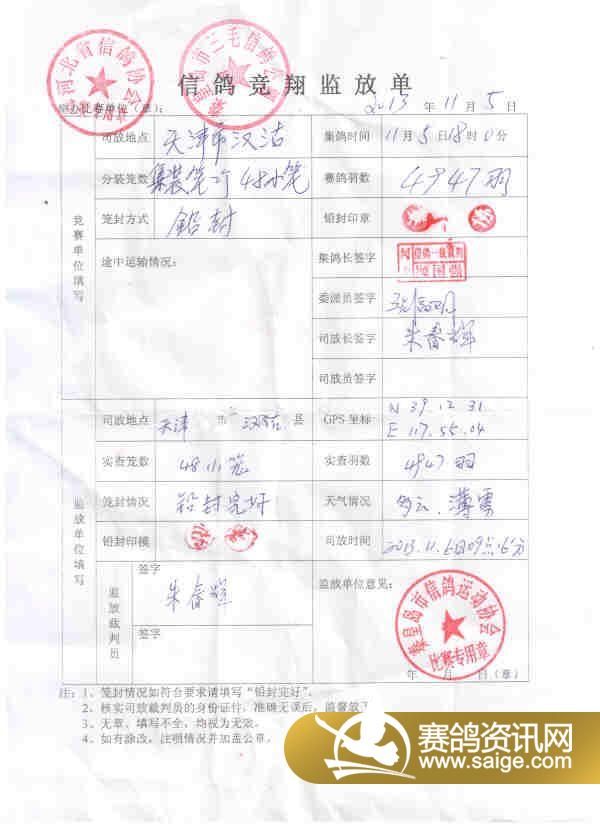 河北省信鸽协会
秦皇岛市三毛信鸽公棚
信鸽竞翔监放单
举办比赛单位(章):
2013年11月5日
竞赛单位填写
司放地点 天津市汉沽 集鸽时间 11月5日18时10分
分装笼数 集装笼2个 48小笼 赛鸽羽数 4947羽
笼封方式 铅封 铅封印章
途中运输情况: 集鸽长签字
委派员签字
司放长签字 朱春辉
司放员签字
监放单位填写
司放地点 天津市汉沽县 GPS坐标 N 39.12.31
E 117.55.04
实查笼数 48小笼 实查羽数 4947羽
笼封情况 铅封完好 天气情况 多云.薄雾
铅封印模 司放时间 2013.11.6日09点16分
监放裁判员 签字 朱春辉 监放单位意见:
签字
秦皇岛市信鸽运动协会
比赛专用章
年 月 日(章)
注:1、笼封情况如符合要求请填写“铅封完好”。
2、核实司放裁判员的身份证件,准确无误后,监督放
3、无章、填写不全,均视为无效。
4、如有涂改,注明情况并加盖公章。
赛鸽资讯网
www.saige.com